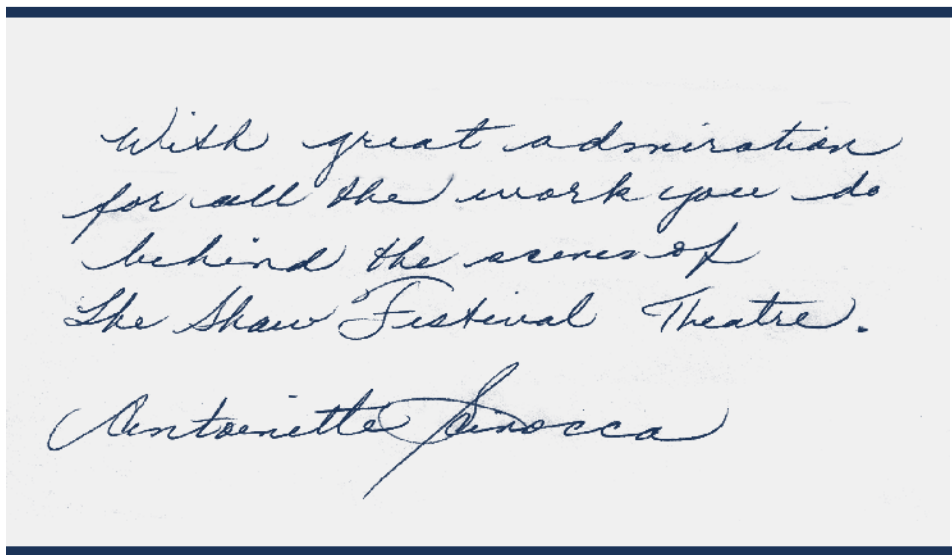 With great admiration
for all the work you do
behind the scenes of
The Shaw Festival Theatre.
Antoinette